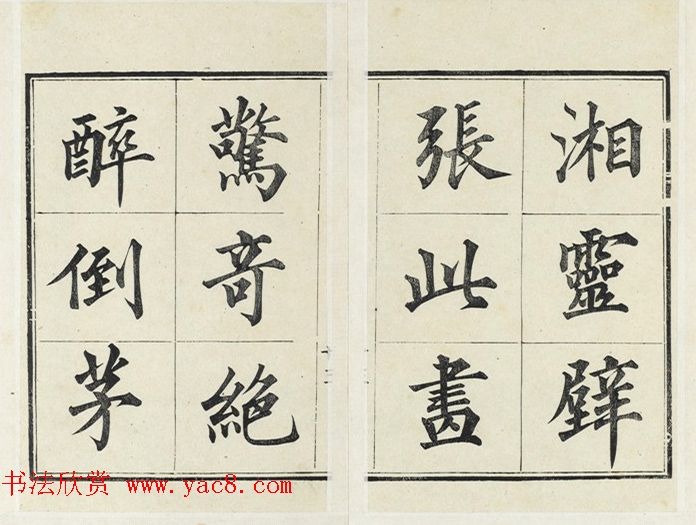 湘靈壁
張此畵
驚奇絕
醉倒茅
书法欣赏 www.yac8.com